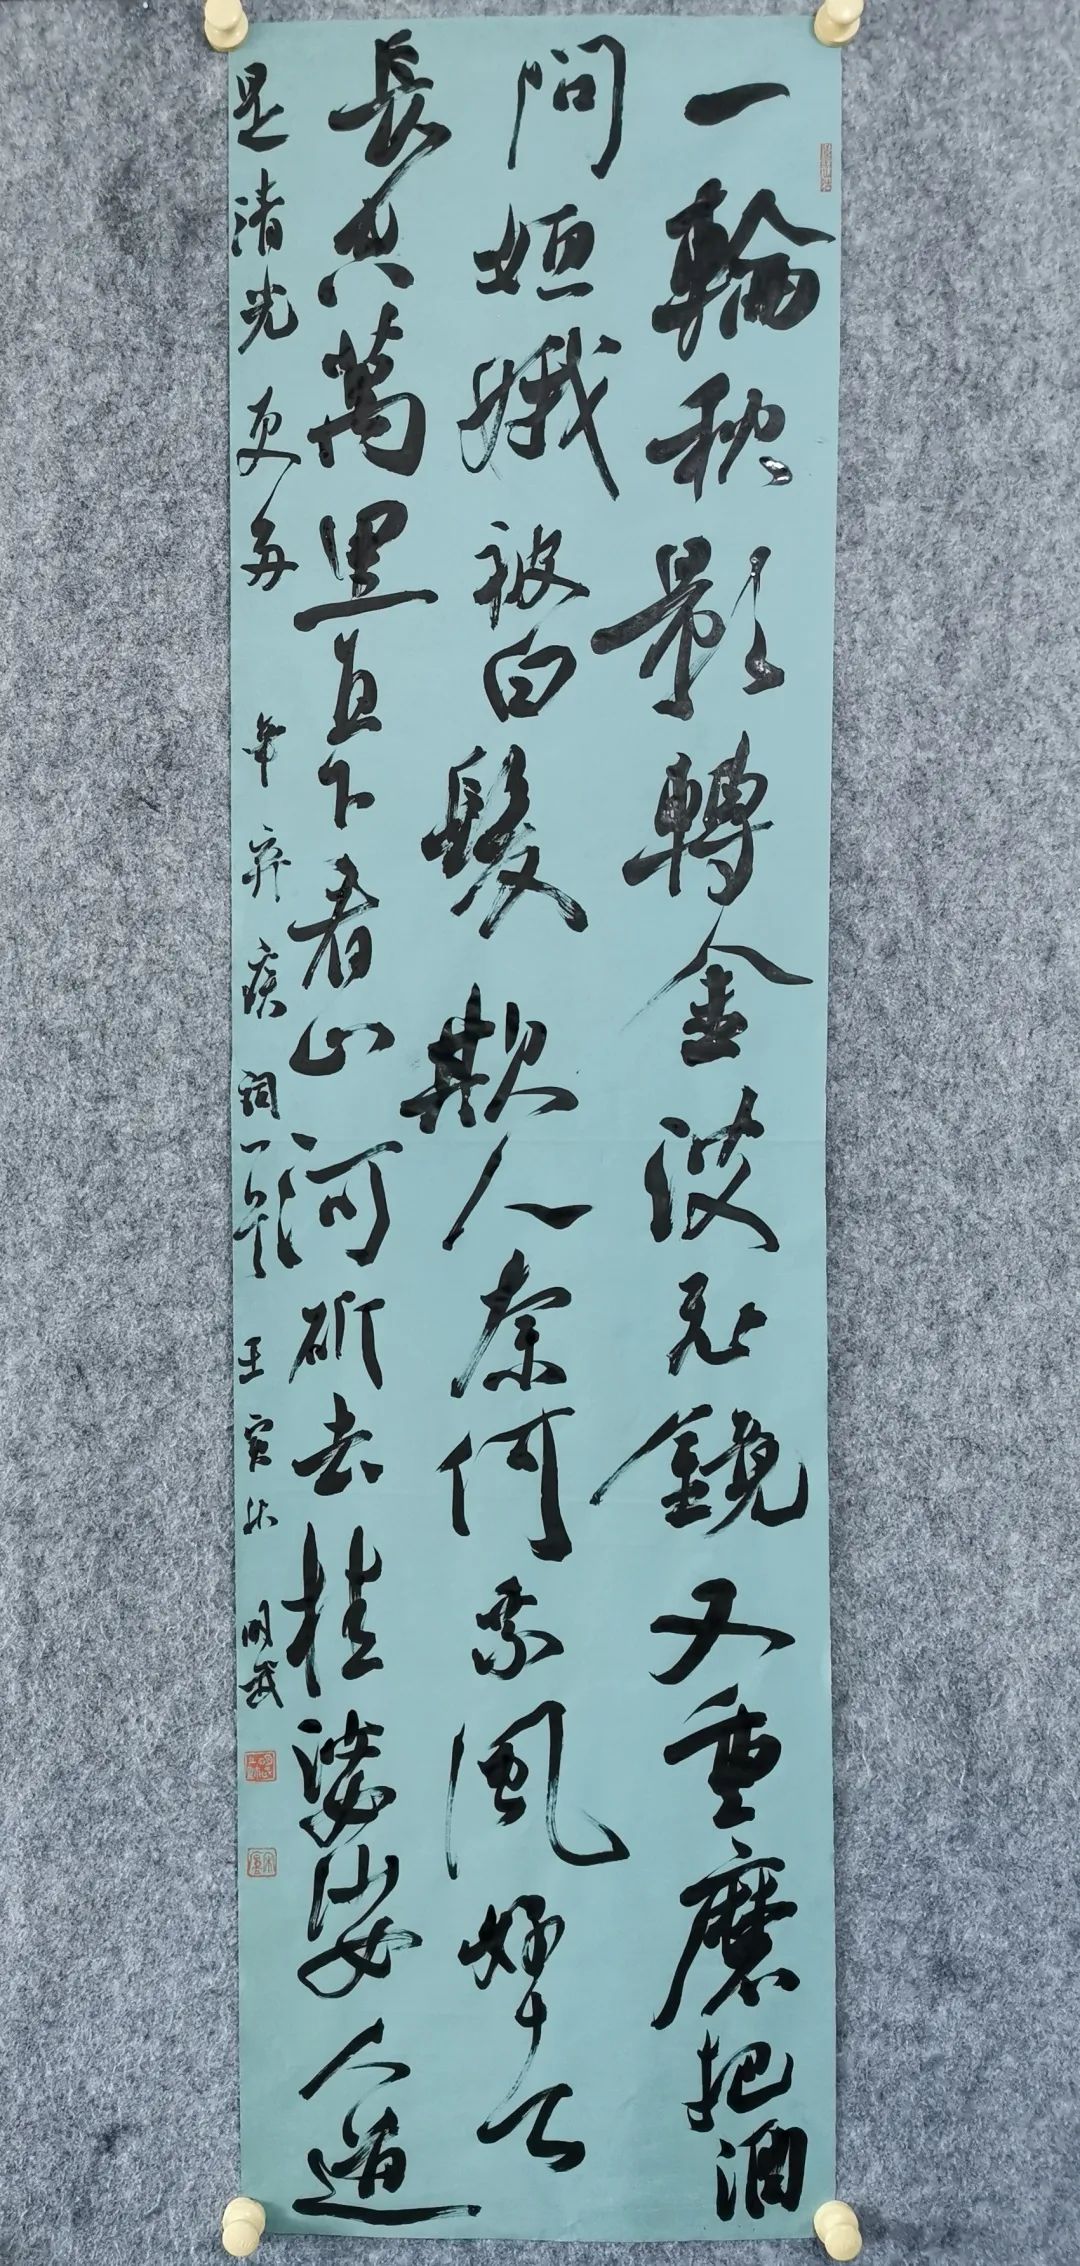 一輪秋影轉金波飞鏡又重磨把酒
問姮娥被白髮欺人奈何乘風好去
長空萬里直下看山河斫去桂婆娑人道
是清光更多 辛弃疾詞一首 壬寅秋 明武